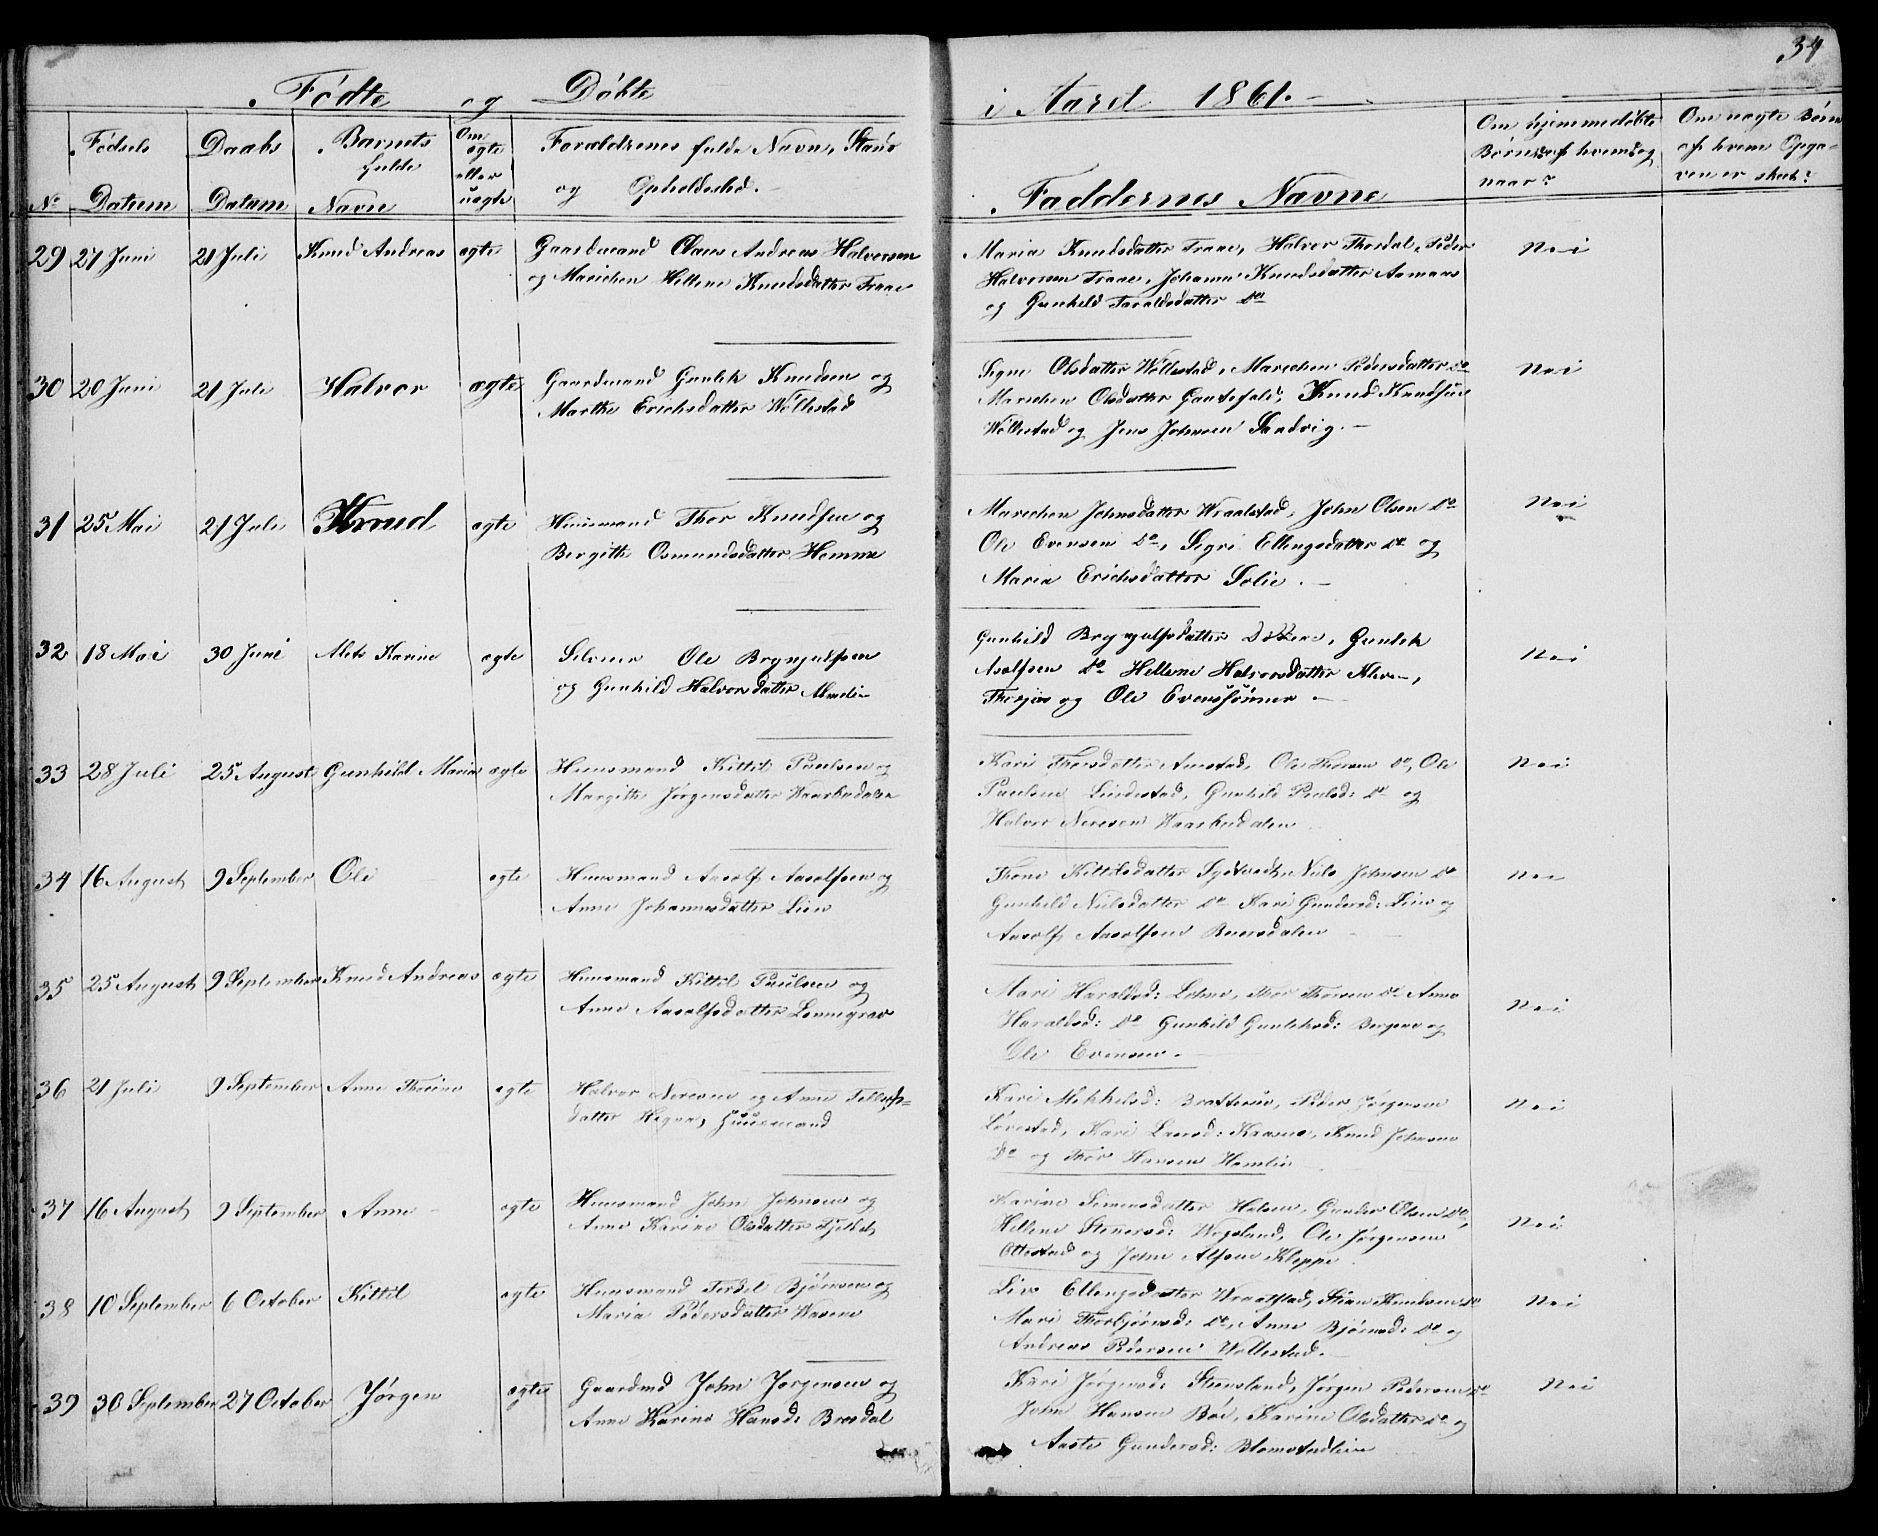 34
Födte og Döbte i Aaret 1861.
No
Födsels Datum
Daabs Datum
Barnets fulde Navn
Om ægte eller uægte
Forældrenes fulde Navn, Stand og Opholdssted.
Faddernes Navne
Om hjemmedöbte Börn af hvem og naar?
Om uægte Börn af hvem Opgaven er skeet?
29 27 Juni 21 Juli Knud Andreas ægte Gaardmand Claus Andreas Halvorsen
og Marichen Hellene Knudsdatter Traae
Maria Knudsdatter Traae, Halvor Thordal, Peder
Halvorsen Traae, Johanne Knudsdatter Aamaas
og Gunhild Taraldsdatter Do
Nei
30 20 Juni 21 Juli Halvor ægte Gaardmand Gunlek Knudsen og
Marthe Erichsdatter Wöllestad
Signe Olsdatter Wöllestad, Marichen Pedersdatter Do
Marichen Olsdatter Gautefald, Knud Knudsen
Wöllestad og Jens Johnsen Sandvig.
Nei
31 25 Mai 21 Juli Knud ægte Huusmand Thor Knudsen og
Bergithe Osmundsdatter Hemma
Marichen Johnsdatter Wraalstad, John Olsen Do
Ole Evensen Do, Segri Ellengsdatter Do og
Maria Erichsdatter Solie.
Nei
32 18 Mai 30 Juni Alete Karine ægte Selveier Ole Brynjulfsen
og Gunhild Halvorsdatter
Gunhild Brynjulfsdatter Gunlek
Aasolfsen Do Hellene Halvorsdatter
og Ole Evenssönner
Nei
33 28 Juli 25 August Gunhild Maria ægte Huusmand Kittil Paulsen og
Margith Jörgensdatter Waasbudalen
Kari Thorsdatter Ole Thorsen Do, Ole
Paulsen Lindestad, Gunhild Paulsd: Do og
Halvor Neresen Waasbudalen
Nei
34 16 August 9 September Ole ægte Huusmand Aasolf Aasolfsen og
Anne Johannesdatter Lien
Thone Kittilsdatter Nils Johnsen Do
Gunhild Nielsdatter Do Kari Gundersd: Lien og
Aasolf Aasolfsen Buursdalen
Nei
35 25 August 9 September Knud Andreas ægte Huusmand Kittil Paulsen og
Anne Aasolfsdatter Lonnegrav
Mari Haraldsd: Thor Thorsen Do Anne
Haraldsd: Do Gunhild Gunleksd: og
Ole Evensen.
Nei
36 21 Juli 9 September Anne Thorine ægte Halvor Neresen og Anne Tellefs-
datter Hegna, Huusmand
Kari Mikkelsd: Peder Jörgensen
Lövestad, Kari Larsd: Knud Johnsen
Do og Thor Hansen Hamlie
Nei
37 16 August 9 September Anne ægte Huusmand John Johnsen og
Anne Karine Olsdatter
Karine Simensdatter Halsen, Gunder Olsen Do,
Hellene Stenersd: Ole Jörgensen
Ottestad og John Alfsen Kleppe
Nei
38 10 September 6 October Kittil ægte Huusmand Terkel Björnsen og
Maria Pedersdatter
Liv Ellengsdatter Wraalstad, Stian Knudsen Do
Mari Thorbjörnsd: Do, Anne Björnsd: Do og
Andreas Pedersen Wöllestad.
Nei
39 30 September 27 October Jörgen ægte Gaardmd John Jörgensen og
Anne Karine Hansd: Bresdal
Kari Jörgensd: Steensland, Jörgen Pedersen Do
John Hansen Böe, Karine Olsdatter Do og
Aaste Gundersd: Blomstadleie
Nei